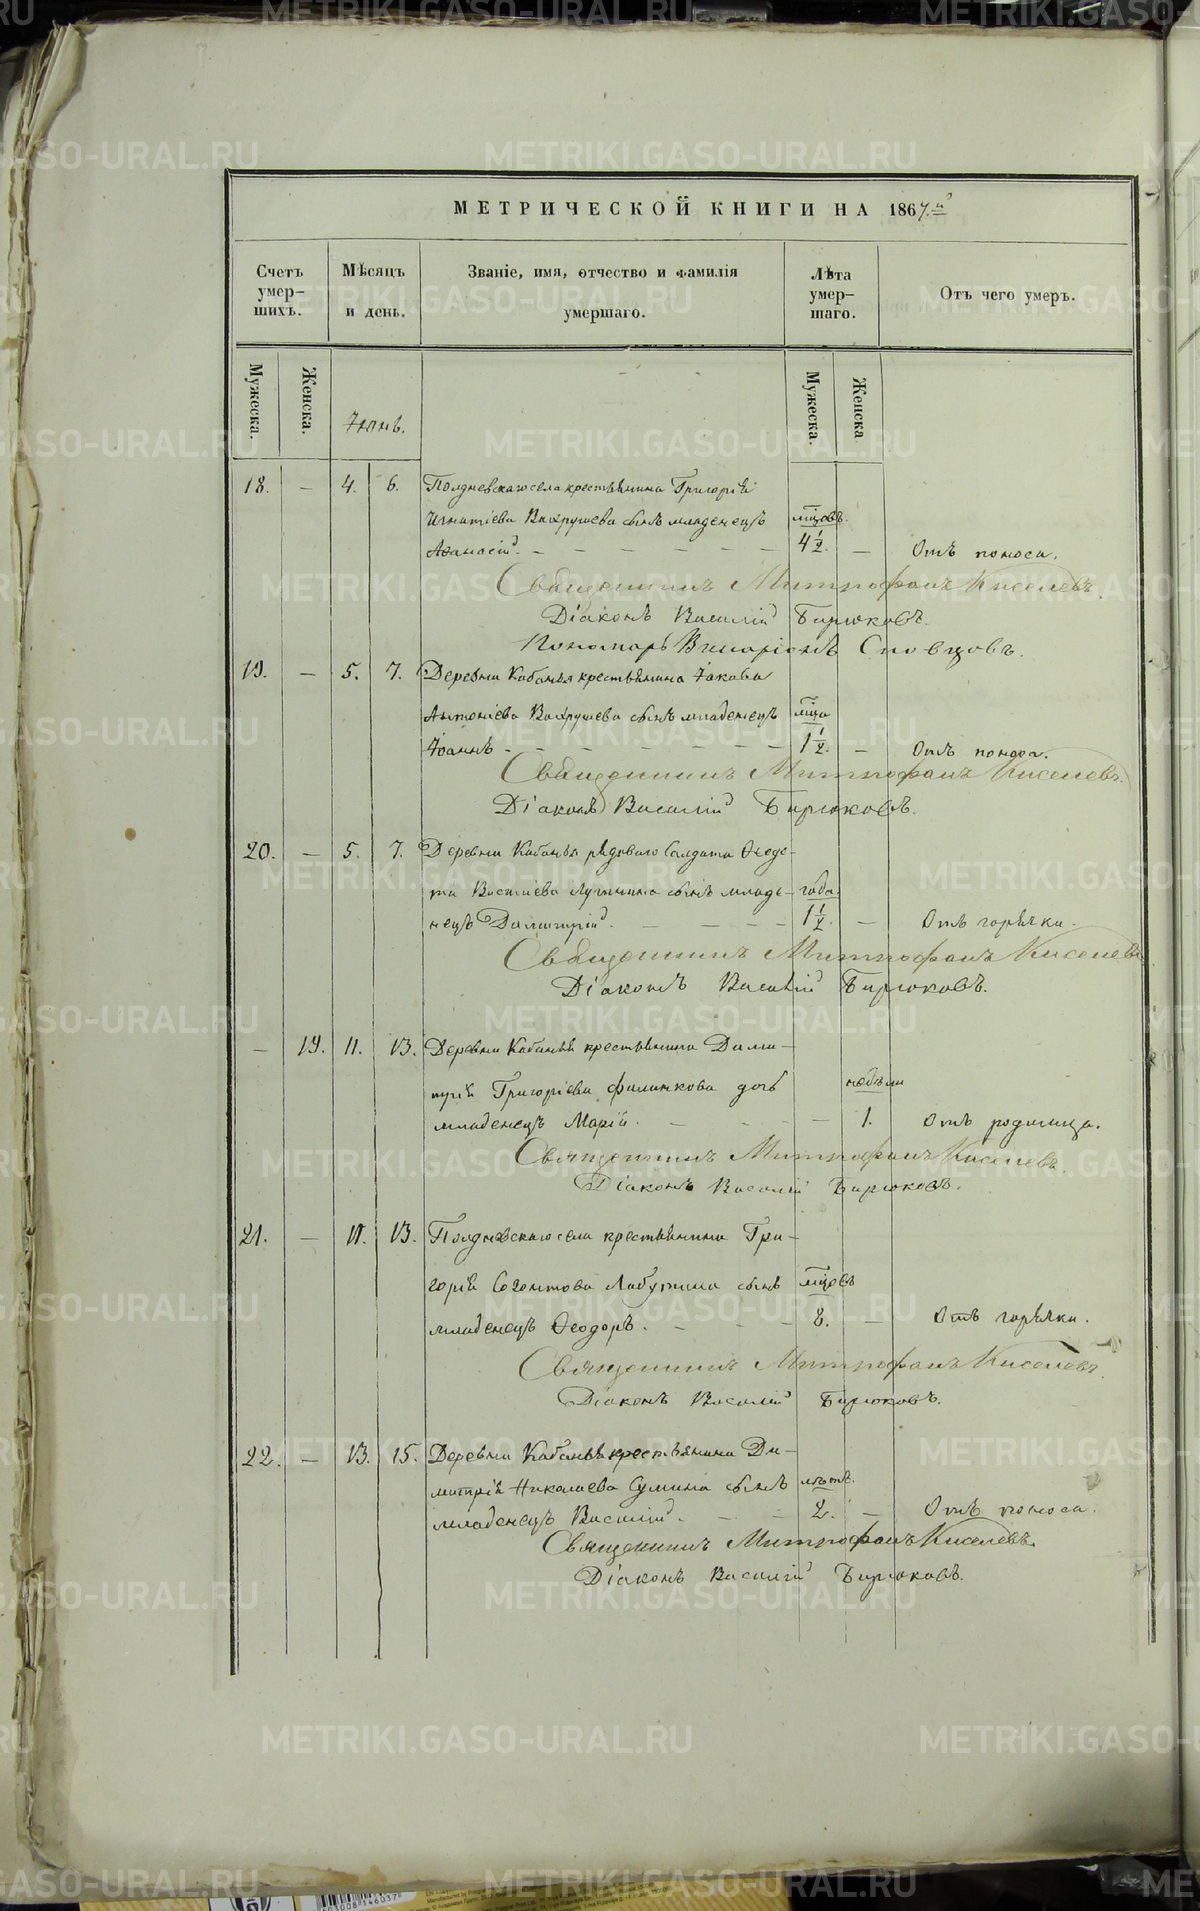 МЕТРИЧЕСКОЙ КНИГИ НА 1867.й
Счетъ умершихъ.
Мѣсяцъ и день.
Званіе, имя, отчество и фамилія умершаго.
Лѣта умершаго.
Отъ чего умеръ.
Мужеска.
Женска.
Іюнь.
Мужеска.
Женска
18. — 4. 6. Полдневскаго села крестьянина Григорій
Игнатіева Вахрушева сынъ младенецъ мцовъ.
Аѳанасій. 4½. — Отъ поноса.
Священникъ Митрофанъ Киселевъ.
Діаконъ Василій Бирюковъ.
Пономарь Иларіонъ Словцовъ.
19. — 5. 7. Деревни Кабанья крестьянина Іакова
Антоніева Вахрушева сынъ младенецъ мца
Іоаннъ 1½. — Отъ поноса.
Священникъ Митрофанъ Киселевъ.
Діаконъ Василій Бирюковъ.
20. — 5. 7. Деревни Кабанья рядоваго Солдата Ѳеодо-
та сынъ младе- года.
нецъ Димитрій. 1½. — Отъ горячки.
Священникъ Митрофанъ Киселевъ
Діаконъ Василій Бирюковъ.
— 19. 11. 13. Деревни Кабаньи крестьянина Дими-
трій Григоріева Филинкова дочь недѣли
младенецъ Марія. — 1. Отъ родимца.
Священникъ Митрофанъ Киселевъ.
Діаконъ Василій Бирюковъ.
21. — 11. 13. Полдневскаго села крестьянина Гри-
горій Созонтова Лабутина сынъ мцовъ
младенецъ Ѳеодоръ. 8. — Отъ горячки.
Священникъ Митрофанъ Киселевъ.
Діаконъ Василій Бирюковъ.
22. — 13. 15. Деревни Кабанья крестьянина Ди-
митрій Николаева Сумина сынъ лѣтъ.
младенецъ Василій. 2. — Отъ поноса.
Священникъ Митрофанъ Киселевъ.
Діаконъ Василій Бирюковъ.
METRIKI.GASO-URAL.RU